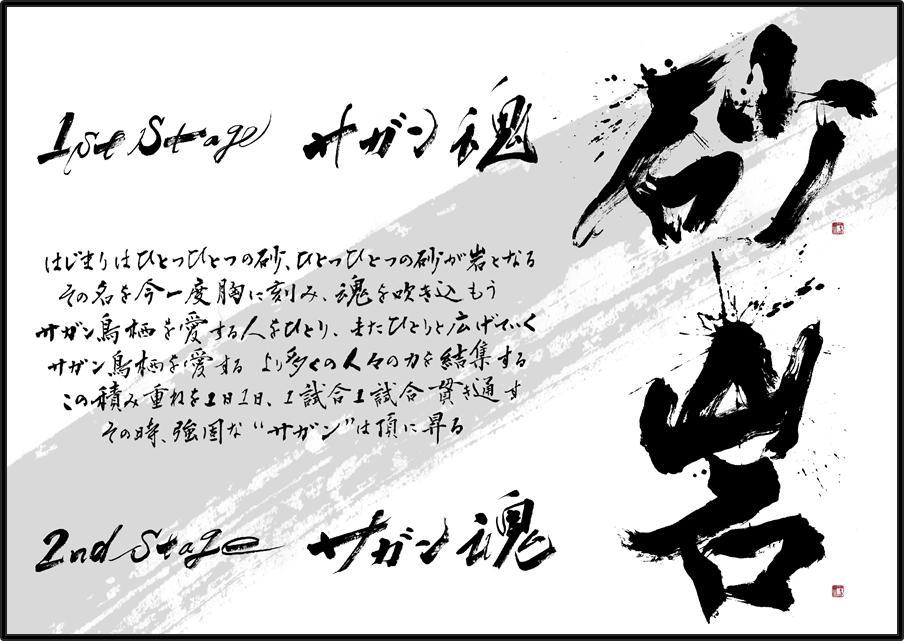 砂岩
1st Stage サガン魂
はじまりはひとつひとつの砂、ひとつひとつの砂が岩となる
その名を今一度胸に刻み、魂を吹き込もう
サガン鳥栖を愛する人をひとり、またひとりと広げていく
サガン鳥栖を愛する より多くの人々の力を結集する
この積み重ねを1日1日、1試合1試合貫き通す
その時、強固な“サガン”は頂に昇る
2nd Stage サガン魂